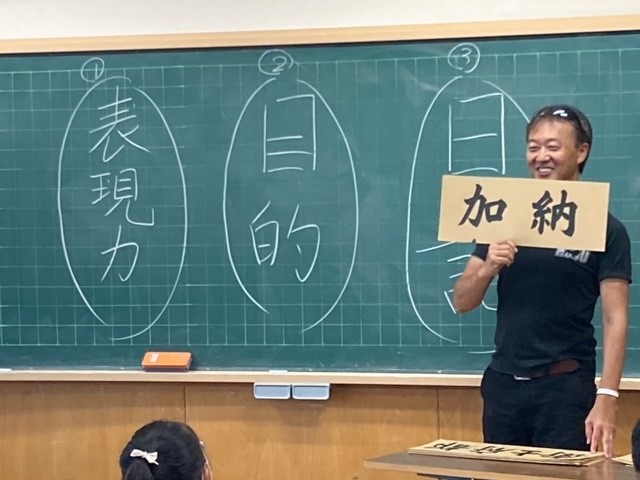 ①
表現力
②
目的
③
加納